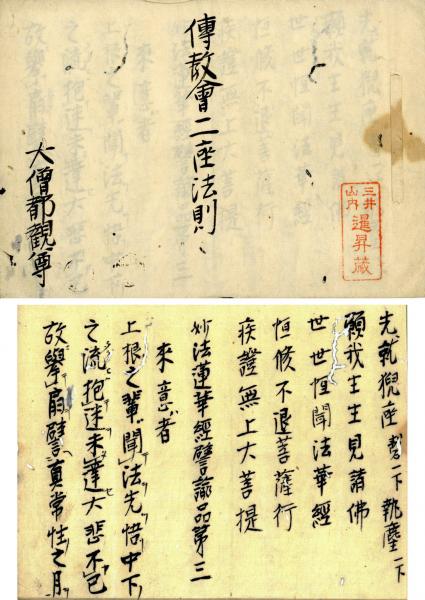 傳教會二座法則
大僧都觀尊
三井
山内
暹昇蔵
先就猊座 磬一下 執塵一下
願我生生見諸佛
世世恒聞法華經
恒修不退菩薩行
疾證無上大菩提
妙法蓮華經譬諭品第三
來意者
上根之輩聞法先悟中下
之流抱迷未達大悲不已
故擧扇譬眞常性之月